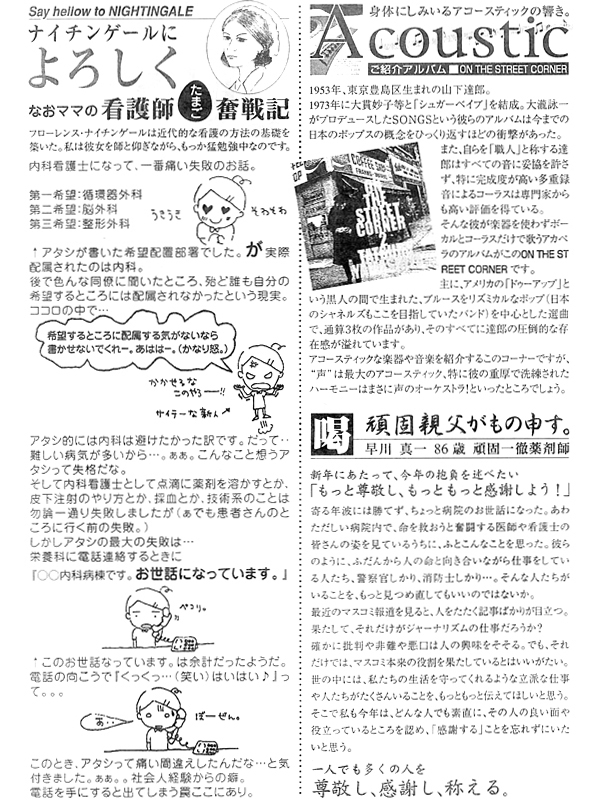 Say hellow to NIGHTINGALE
ナイチンゲールに
よろしく
なおママの 看護師 たまご 奮戦記
フローレンス・ナイチンゲールは近代的な看護の方法の基礎を
築いた。私は彼女を師と仰ぎながら、もっか猛勉強中なのです。
内科看護師になって、一番痛い失敗のお話。
第一希望:循環器外科
第二希望:脳外科
第三希望:整形外科
うきうき
そわそわ
↑アタシが書いた希望配置部署でした。が実際
配属されたのは内科。
後で色んな同僚に聞いたところ、殆ど誰も自分の
希望するところには配属されなかったという現実。
ココロの中で…
希望するところに配属する気がないなら
書かせないでくれー。あははー。(かなり怒。)
かかせるな
このやろーー!!
サイテーな新人
アタシ的には内科は避けたかった訳です。だって‥
難しい病気が多いから…。ぁぁ。こんなこと想うア
タシって失格だな。
そして内科看護師として点滴に薬剤を溶かすとか、
皮下注射のやり方とか、採血とか、技術系のことは
勿論一通り失敗しましたが(ぁでも患者さんのと
ころに行く前の失敗。)
しかしアタシの最大の失敗は…
栄養科に電話連絡するときに
『○○内科病棟です。お世話になっています。』
ぺこり。
↑このお世話なっています。は余計だったようだ。
電話の向こうで『くっくっ…(笑い)はいはい♪』っ
て。。。
あ‥
ぼーぜん。
このとき、アタシって痛い間違えしたんだな…と気
付きました。ぁぁ。。社会人経験からの癖。
電話を手にすると出てしまう罠ここにあり。
身体にしみいるアコースティックの響き。
Acoustic
ご紹介アルバム ■ON THE STREET CORNER
1953年、東京豊島区生まれの山下達郎。
1973年に大貫妙子等と「シュガーベイブ」を結成。大瀧泳一
がプロデュースしたSONGSという彼らのアルバムは今までの
日本のポップスの概念をひっくり返すほどの衝撃があった。
また、自らを「職人」と称する達
郎はすべての音に妥協を許さ
ず、特に完成度が高い多重録
音によるコーラスは専門家から
も高い評価を得ている。
そんな彼が楽器を使わずボー
カルとコーラスだけで歌うアカペ
ラのアルバムがこのON THE ST
REET CORNER です。
主に、アメリカの「ドゥーアップ」と
いう黒人の間で生まれた、ブルースをリズミカルなポップ(日本
のシャネルズもここを目指していたバンド)を中心とした選曲
で、通算3枚の作品があり、そのすべてに達郎の圧倒的な存
在感が溢れています。
アコースティックな楽器や音楽を紹介するこのコーナーですが、
“声”は最大のアコースティック、特に彼の重厚で洗練された
ハーモニーはまさに声のオーケストラ!といったところでしょう。
COFFEE SHOP
THE
STREET
CORNER
2
喝
頑固親父がもの申す。
早川 真一 86歳 頑固一徹薬剤師
新年にあたって、今年の抱負を述べたい
「もっと尊敬し、もっともっと感謝しよう!」
寄る年波には勝てず、ちょっと病院のお世話になった。あわ
ただしい病院内で、命を救おうと奮闘する医師や看護士の
皆さんの姿を見ているうちに、ふとこんなことを思った。彼ら
のように、ふだんから人の命と向き合いながら仕事をしてい
る人たち、警察官しかり、消防士しかり…。そんな人たちが
いることを、もっと見つめ直してもいいのではないか。
最近のマスコミ報道を見ると、人をたたく記事ばかりが目立つ。
果たして、それだけがジャーナリズムの仕事だろうか?
確かに批判や非難や悪口は人の興味をそそる。でも、それ
だけでは、マスコミ本来の役割を果たしているとはいいがたい。
世の中には、私たちの生活を守ってくれるような立派な仕事
や人たちがたくさんいることを、もっともっと伝えてほしいと思う。
そこで私も今年は、どんな人でも素直に、その人の良い面や
役立っているところを認め、「感謝する」ことを忘れずにいた
いと思う。
一人でも多くの人を
尊敬し、感謝し、称える。